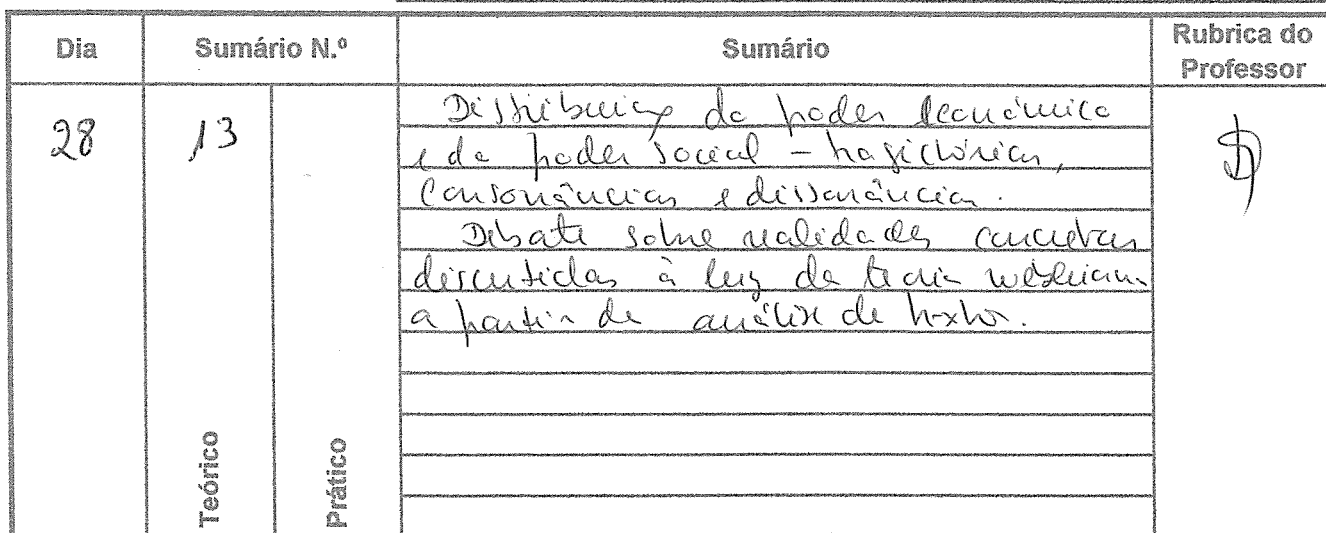 Dia Sumário N.º Sumário Rubrica do Professor
28 13
Distribuição do poder económico
e do poder social – trajectórias,
consonâncias e dissonâncias.
Debate sobre realidades concretas
discutidas à luz da teoria weberiana
a partir de análise de textos.
Teórico
Prático